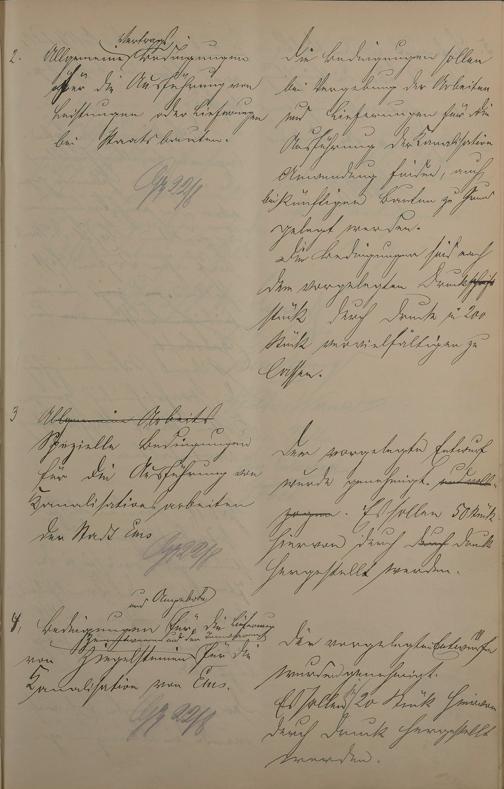 2. Allgemeine Vertrags Bedingungen
für die Ausführung von
Leistungen oder Lieferungen
bei Staatsbauten.
die Bedingungen sollen
bei Vergebung der Arbeiten
und Lieferungen für die
Ausführung der Canalisation
Anwendung finden, auch
bei künftigen Bauten zu Grund
gelegt werden.
die Bedingungen sind nach
dem vorgelegten Druck
stück durch Druck in 200
Stück vervielfältigen zu
lassen.
3 Allgemeine Arbeits
Spezielle Bedingungen
für die Ausführung von
Kanalisationsarbeiten
der Stadt Ems
Der vorgelegte Entwurf
wurde genehmigt.
Es sollen 50 Stück
hiervon durch durch Druck
hergestellt werden.
und Angebote
4. Bedingungen für die Lieferung
von Ziegelsteinen für die
Kanalisation von Ems.
Die vorgelegten Entwürfe
wurden genehmigt.
Es sollen 20 Stück hiervon
durch Druck hergestellt
werden.